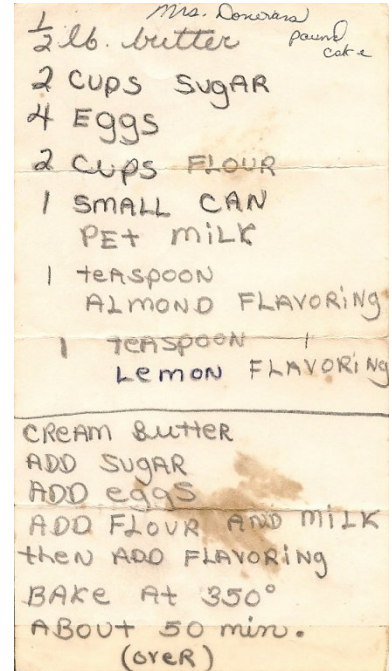 Mrs. Donovan's
pound
cake
1/2 lb. butter
2 CUPS SUGAR
4 Eggs
2 CUPS FLOUR
1 SMALL CAN
PEt MiLK
1 teASPOON
ALMOND FLAVORiNg
1 teASPOON
LemON FLAVORiNg
CREAM Butter
ADD SUgAR
ADD eggS
ADD FLOUR AND MiLK
then ADD FLAVORiNg
BAKe At 350°
ABOUt 50 min.
(oveR)